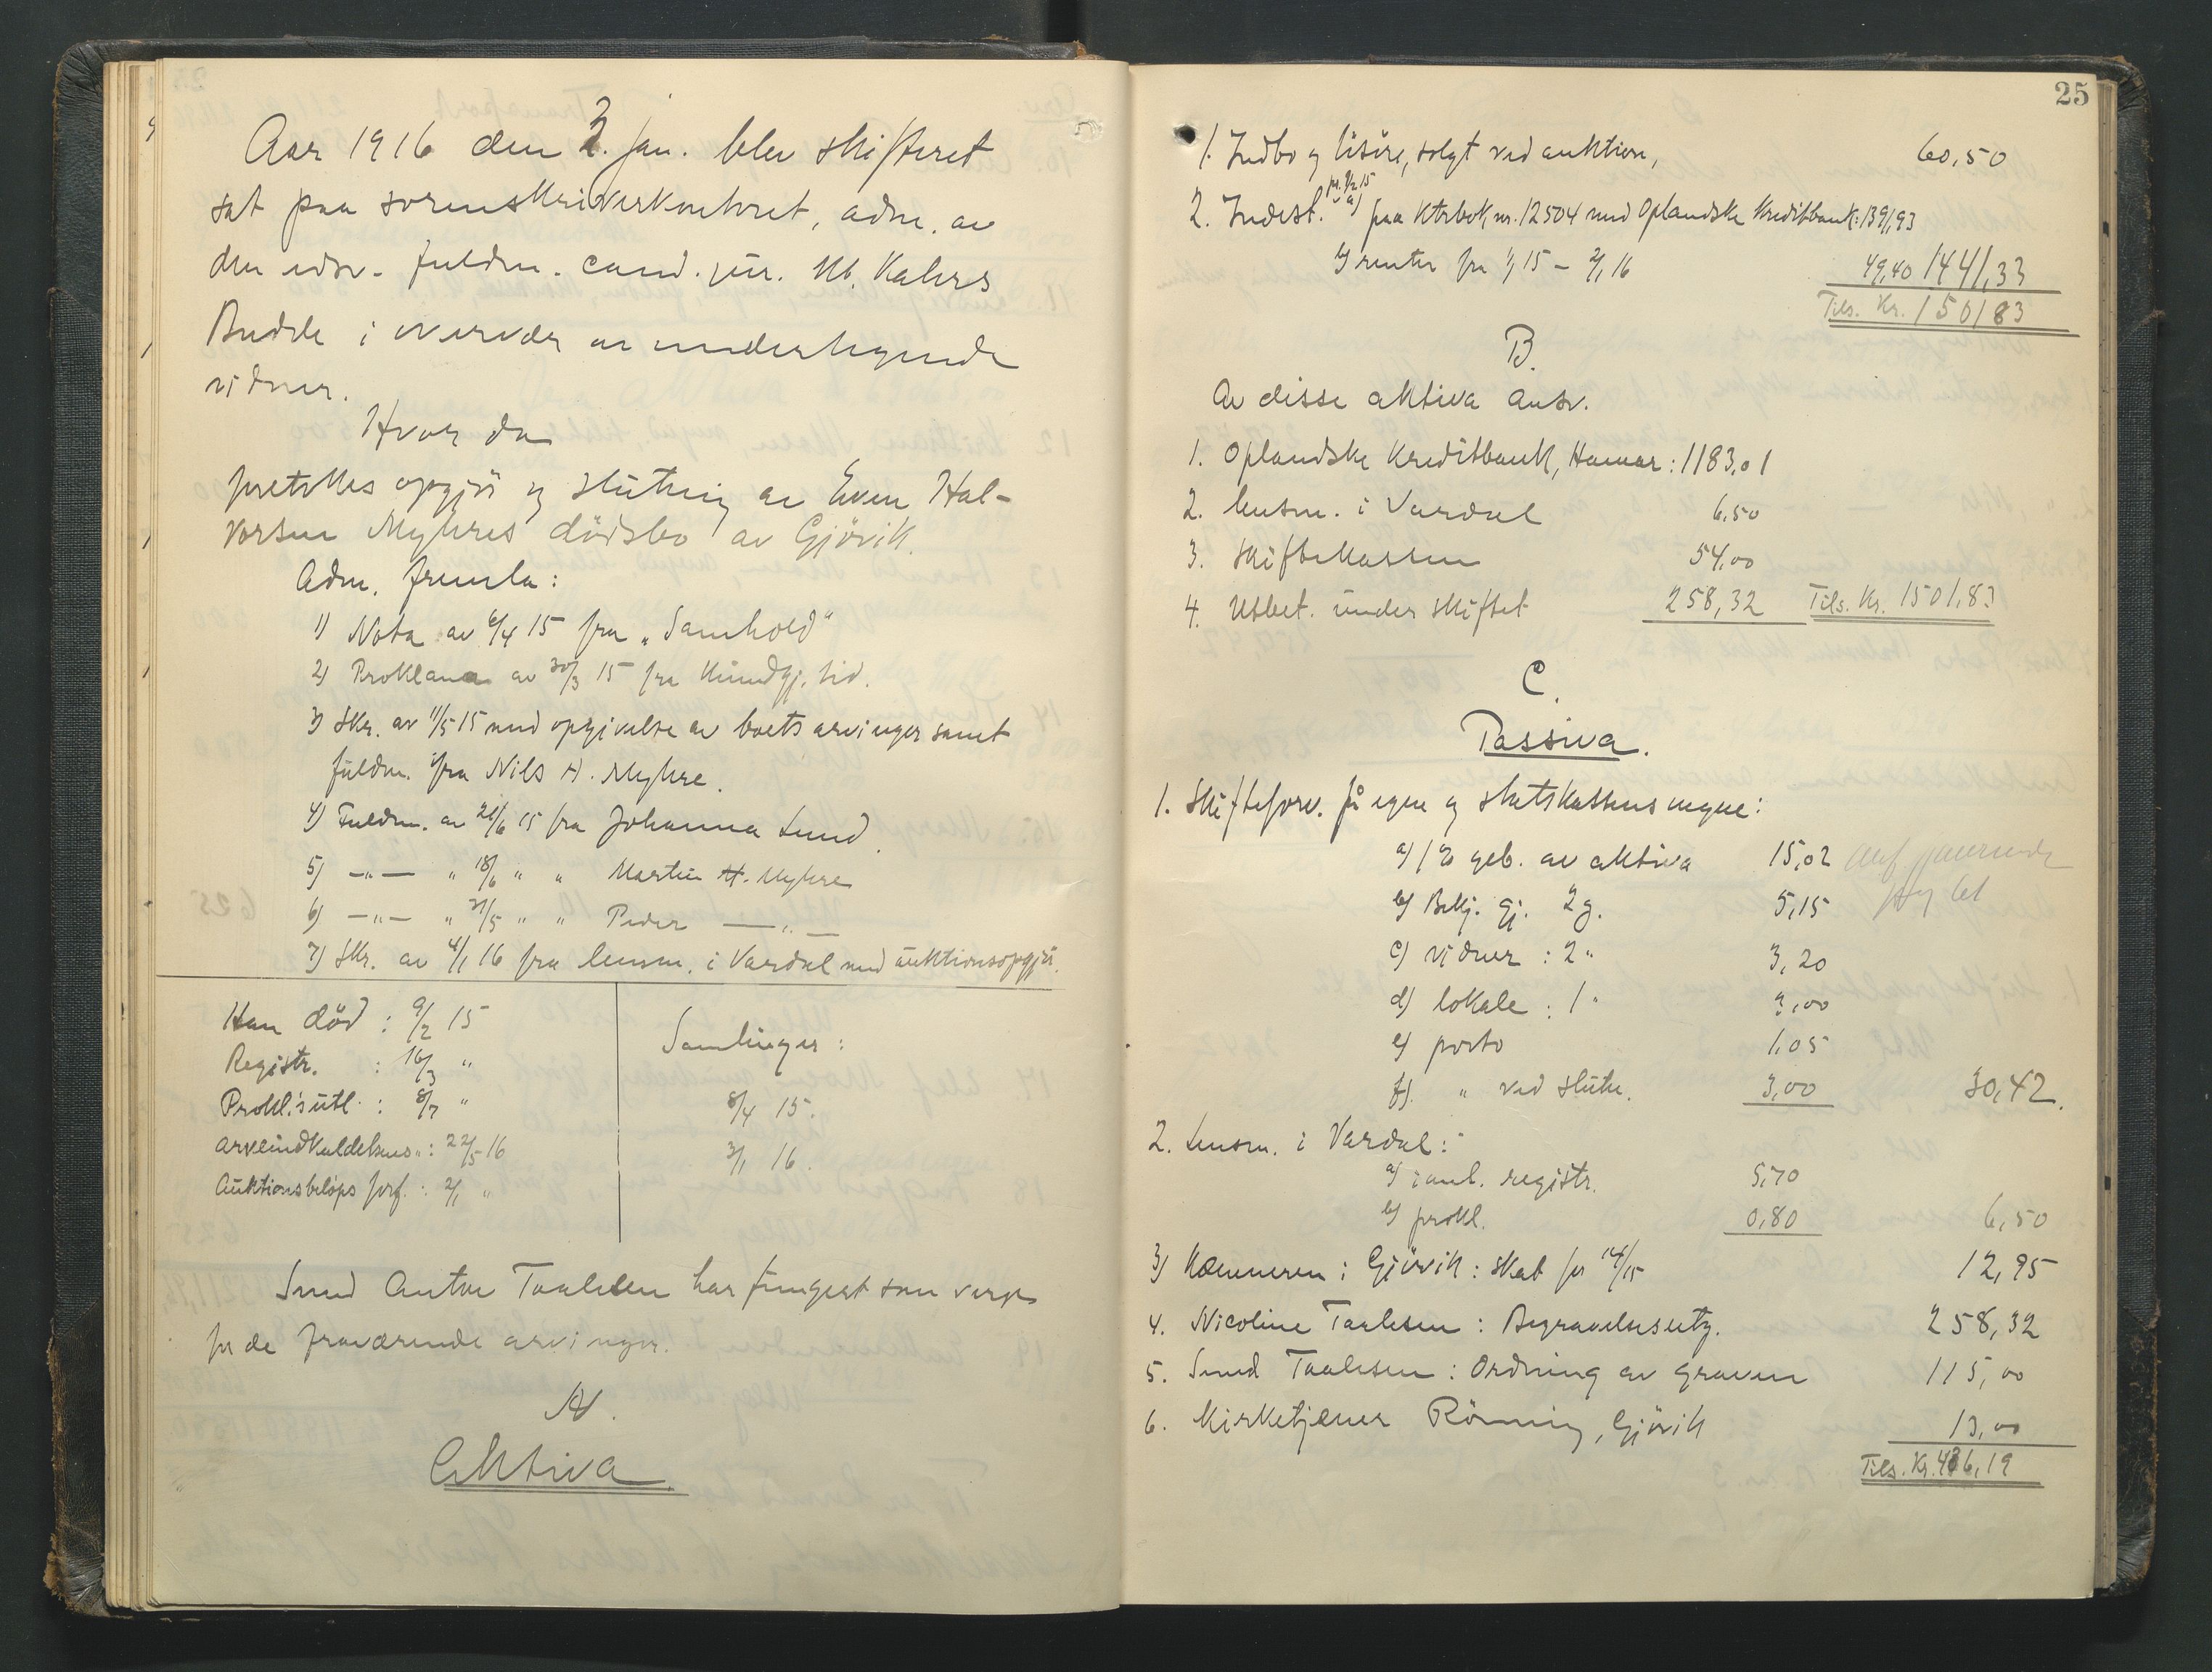 Aar 1916 den 3. jan. blev skifteret
sat paa sorenskriverkontoret, adm. av
den edsv. fuldm. cand. jur. M. Kahrs
Budde i overvær av undertegnede
vidner.
Hvor da
foretokes opgjör og slutning av Even Hal-
vorsen Myhres dödsbo av Gjövik.
Adm. fremla:
1) Nota av 6/4 15 fra „Samhold"
2) Proklama av 30/3 15 fra Kundgj. tid.
3) Skr. av 11/5 15 med opgivelse av boets arvinger samt
fuldm. fra Nils H. Myhre.
4) Fuldm. av 21/6 15 fra Johanna Lund.
5) —„— „ 18/6 „ „ Martin H. Myhre
6) —„— „ 31/5 „ „ Peder —„—
7) Skr. av 4/1 16 fra lensm. i Vardal med auktionsopgjör.
Han död : 9/2 15
Registr. : 16/3 „
Prokl.'s utl. : 8/7 „
Arveindkaldelsens „ : 22/5 16
Auktionsbelöps forf. : 2/1 „
Samlinger :
8/4 15.
3/1 16.
Smed Anton Taalesen har fungert som verge
for de fraværende arvinger.
A.
Aktiva.
25
1. Indbo og lösöre, solgt ved auktion, 60,50
2. Indest. pr. 9/2 15 a) paa ktrbok nr. 12504 med Oplandske Kreditbank: 1391,93
b) renter fra 1/1 15 – 3/1 16 49,40 1441,33
Tils. Kr. 150183
B.
Av disse aktiva ansv.
1. Oplandske Kreditbank, Hamar : 1183,01
2. lensm. i Vardal 6,50
3. Skiftekassen 54,00
4. Utbet. under skiftet 258,32 Tils. Kr. 1501,83
C.
Passiva.
1. Skifteforv. på egne og statskassens vegne:
a) 1% geb. av aktiva 15,02
b) Bekj. gj. 2 g. 5,15
c) vidner : 2 „ 3,20
d) lokale : 1 „ 3,00
e) porto 1,05
f) „ ved slutn. 3,00 30,42.
2. Lensm. i Vardal :
a) i anl. registr. 5,70
b) prokl. 0,80 6,50
3) Kæmneren i Gjövik : skat for 14/15 12,95
4. Nicoline Taalesen : Begravelsesutg. 258,32
5. Smed Taalesen : Ordning av graven 115,00
6. Kirketjener Rönning, Gjövik 13,00
Tils. Kr. 436,19